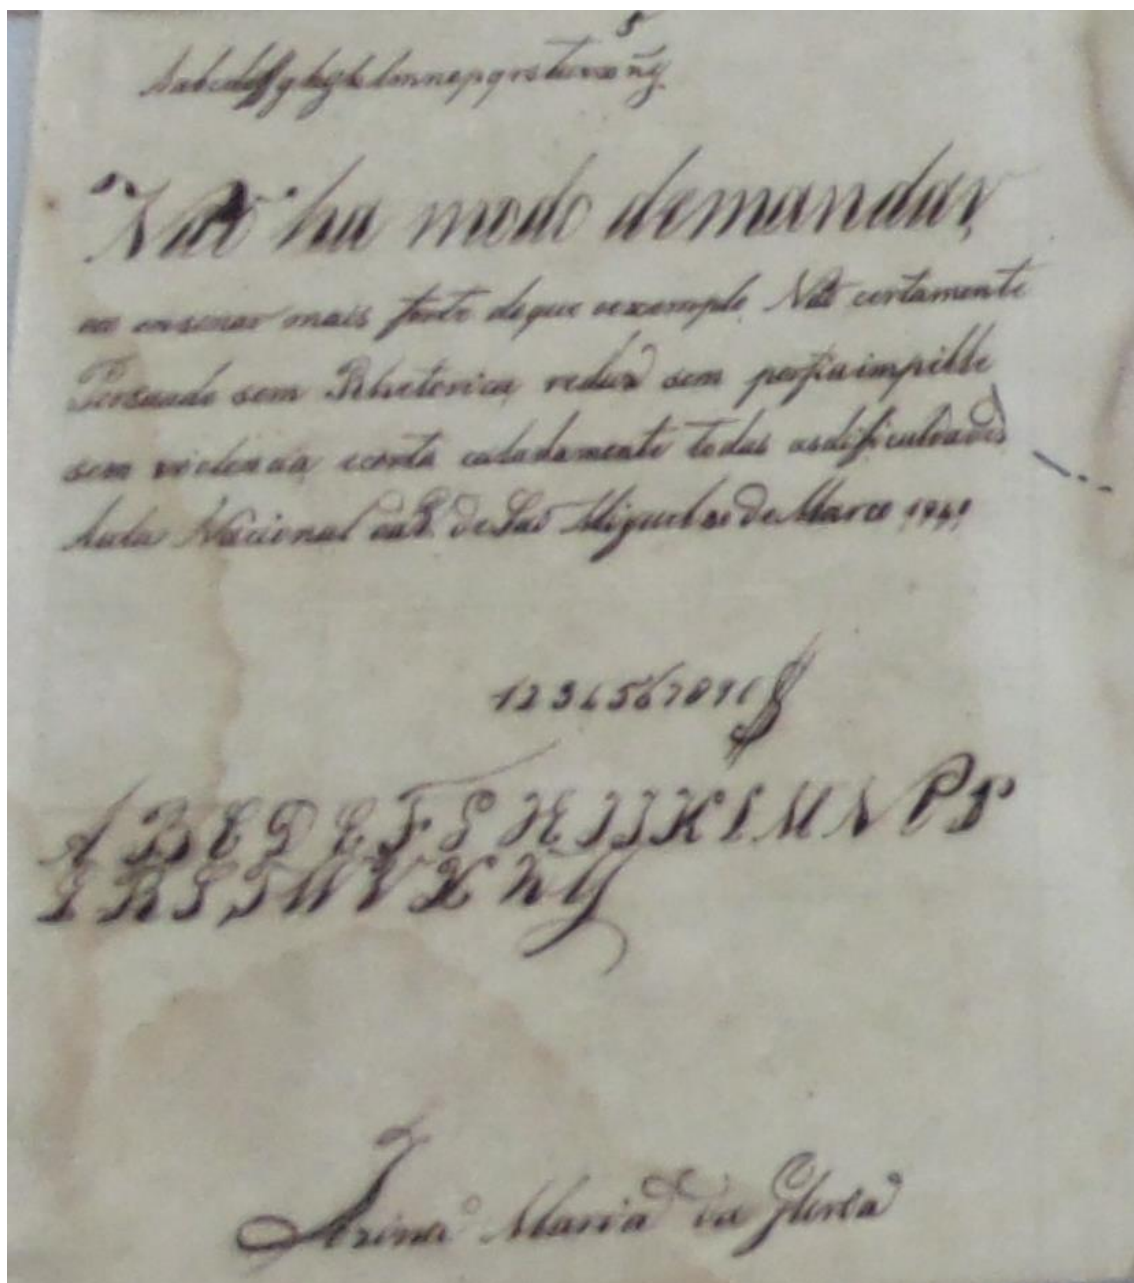 5
Não ha modo demandar,
ou ensinar mais forte doque oexemplo. Não certamente
Persuade sem Rhetorica, reduz sem porfia impelle
sem violencia, ecorta caladamente todas asdificuldades
Aula Nacional da de São Miguel de Março
1234567890
A B C D E F G H I J K L M N O P
Q R S T U V X Y
Maria da Gloria